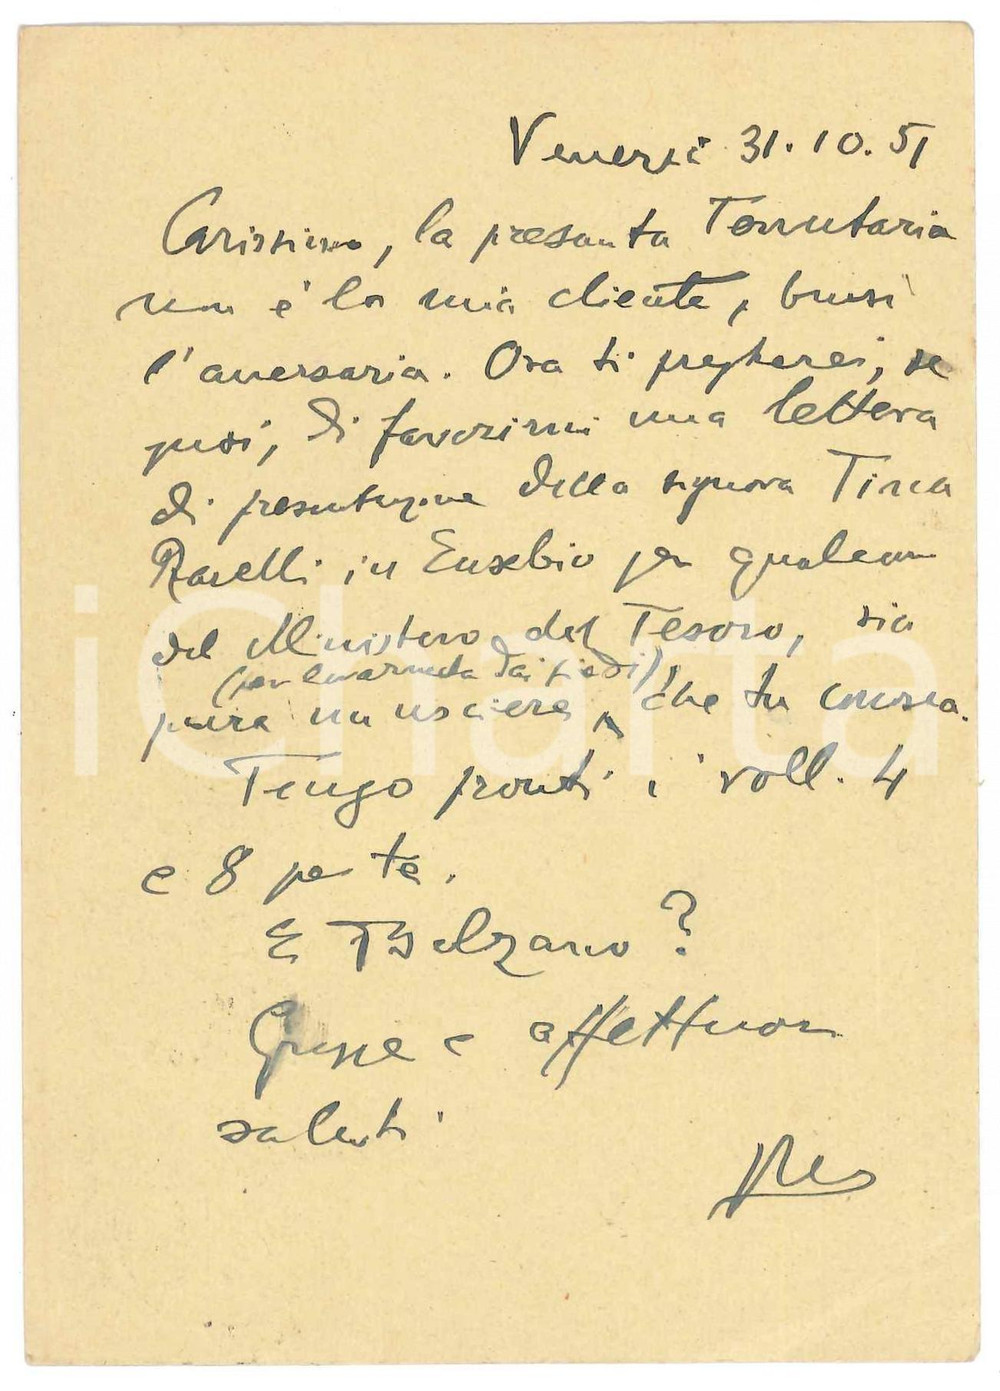 Venezia 31.10.51
Carissimo, la presenta Tenutaria
non è la mia cliente, bensì
l'aversaria. Ora ti pregherei, se
puoi, di favorirmi una lettera
di presentazione della signora Tina
Ravelli in Eusebio per qualcuno
del Ministero del Tesoro, sia
(per levarmela dai piedi)
pure un usciere, che tu conosca.
Tengo pronti i voll. 4
e 8 per te.
E Bolzano?
Grazie e affettuosi
saluti
iCharta